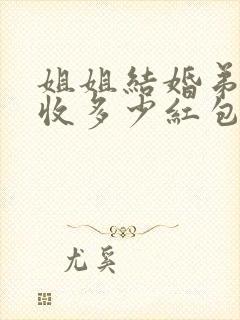 姐姐結婚弟
收多少紅包
尤奚